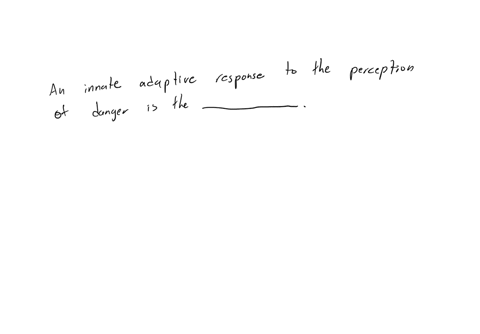 An innate adaptive response to the perception
of danger is the ___________.